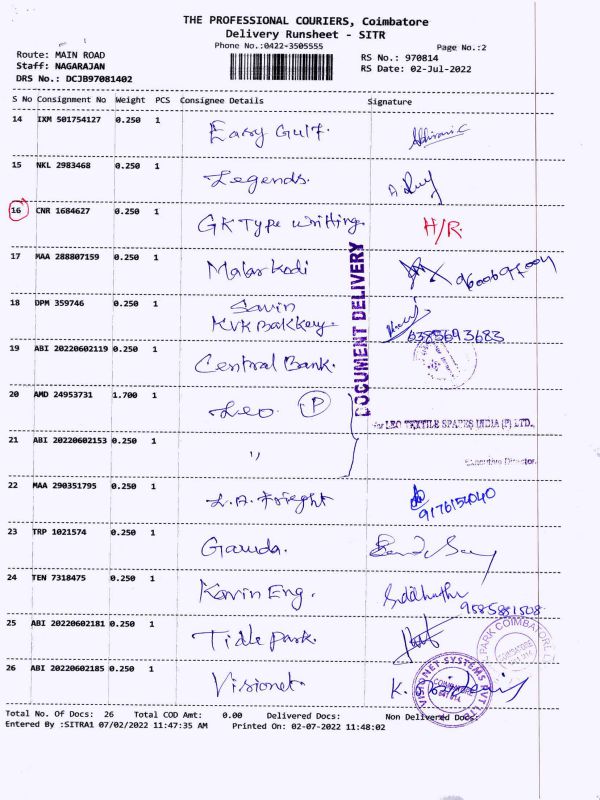 THE PROFESSIONAL COURIERS, Coimbatore
Delivery Runsheet - SITR
Phone No.:0422-3505555
Page No.:2
Route: MAIN ROAD
RS No.: 970814
Staff: NAGARAJAN
RS Date: 02-Jul-2022
DRS No.: DCJB97081402
S No Consignment No Weight PCS Consignee Details Signature
14 IXM 501754127 0.250 1 Easy Gulf.
15 NKL 2983468 0.250 1 Legends.
16 CNR 1684627 0.250 1 GK Type writting. H/R.
17 MAA 288807159 0.250 1 Malar Kodi
18 DPM 359746 0.250 1 Savin
KVK Bakkery. 6385693683
19 ABI 20220602119 0.250 1 Central Bank.
DOCUMENT DELIVERY
20 AMD 24953731 1.700 1 Leo. P
for LEO TEXTILE SPARES INDIA (P) LTD.,
21 ABI 20220602153 0.250 1 ,,
Executive Director.
22 MAA 290351795 0.250 1 L.A. Frieght 9176154040
23 TRP 1021574 0.250 1 Garuda.
24 TEN 7318475 0.250 1 Kovin Eng. 9585881508
25 ABI 20220602181 0.250 1 Tidle Park.
PARK COIMBATORE
26 ABI 20220602185 0.250 1 Visionet. K.
VISIONET SYSTEMS PVT LTD
Total No. Of Docs: 26 Total COD Amt: 0.00 Delivered Docs: Non Delivered Docs:
Entered By :SITRA1 07/02/2022 11:47:35 AM Printed On: 02-07-2022 11:48:02